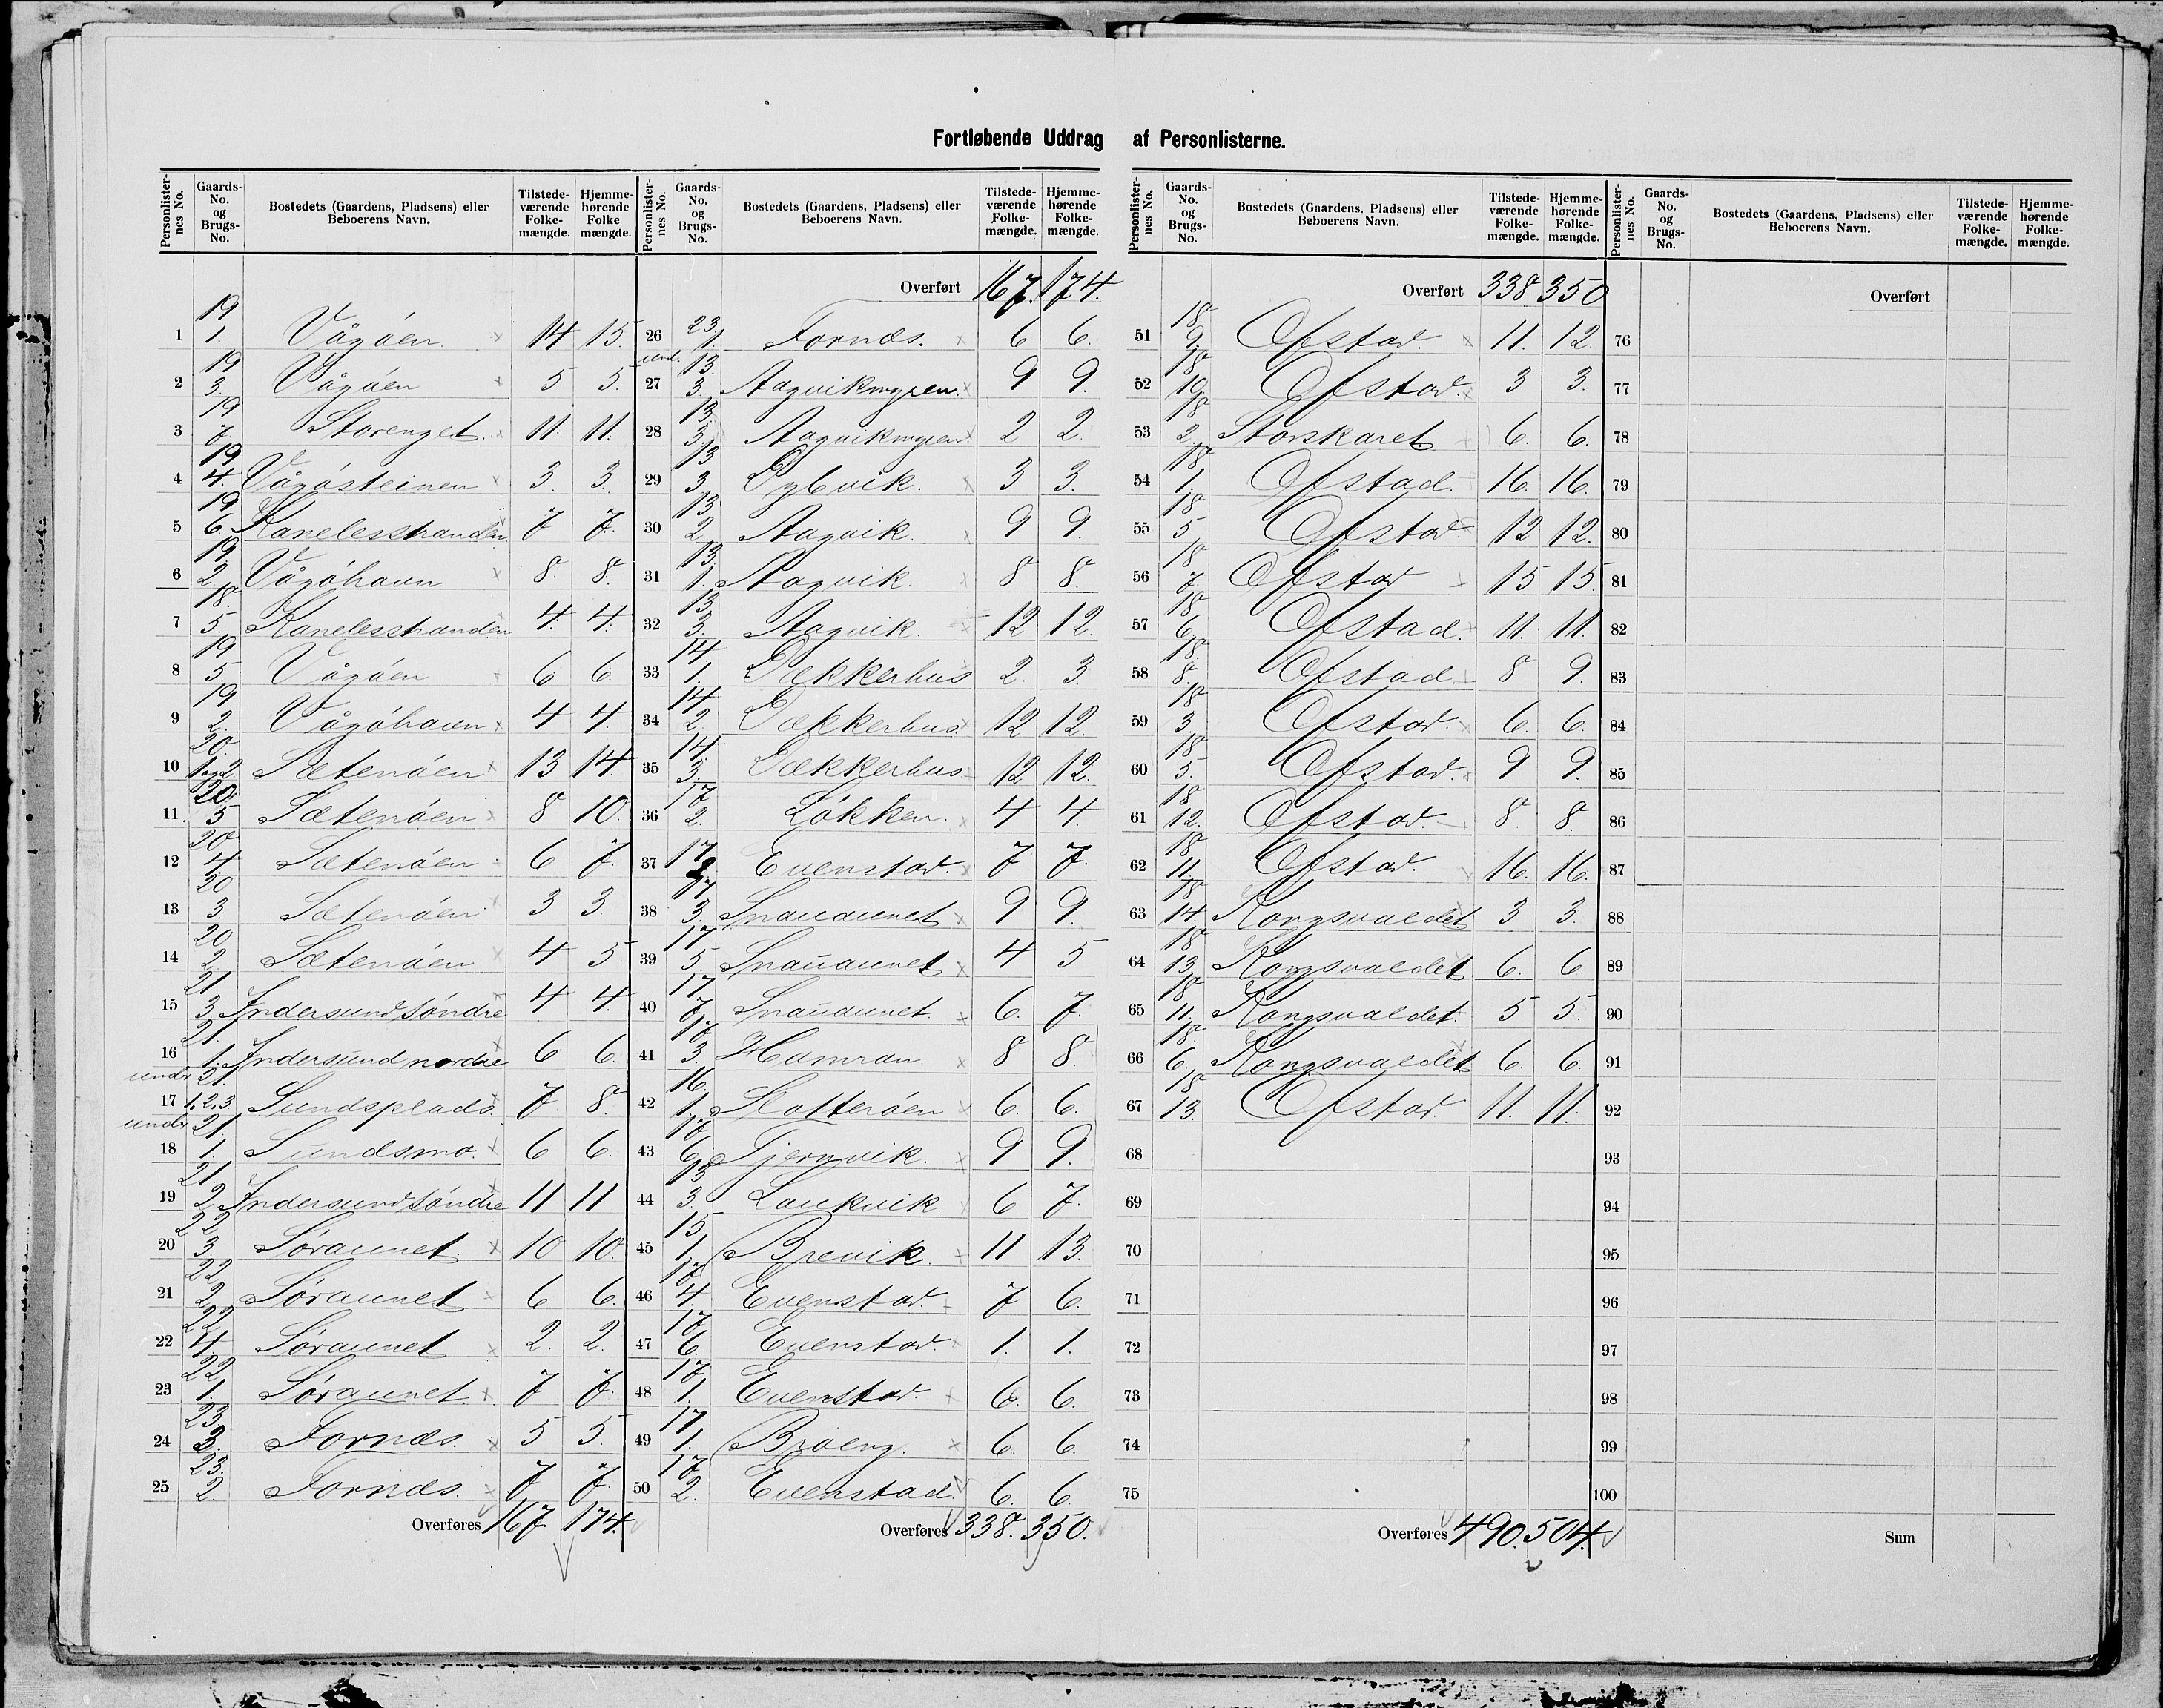 Fortløbende Uddrag af Personlisterne.
Personlister-nes No. | Gaards-No. og Brugs-No. | Bostedets (Gaardens, Pladsens) eller Beboerens Navn. | Tilstede-værende Folke-mængde. | Hjemme-hørende Folke mængde.
1 | 19 1. | Vågöen. | 14 | 15.
2 | 19 3. | Vågöen | 5 | 5.
3 | 19 7. | Storenget. | 11. | 11.
4 | 19 4. | Vågösteinen | 3. | 3.
5 | 19 6. | Kanelesstranden | 7 | 7.
6 | 19 2. | Vågöhavn | 8. | 8.
7 | 18. 5. | Kanelesstranden | 4. | 4.
8 | 19 5. | Vågöen | 6 | 6.
9 | 19 2. | Vågöhavn | 4 | 4.
10 | 20. 1 og 2. | Sætenöen | 13 | 14.
11. | 20. 5 | Sætenöen | 8 | 10.
12 | 20 4. | Sætenöen | 6 | 7.
13 | 20 3. | Sætenöen | 3 | 3.
14 | 20 2. | Sætenöen | 4 | 5
15 | 21. 3. | Indersund söndre | 4 | 4.
16 | 21. 1. | Indersund nordre | 6 | 6.
17 | under 21. 1. 2. 3. | Sundsplads. | 7 | 8.
18 | under 21 1. | Sundsmo. | 6 | 6.
19 | 21. 2. | Indersund söndre | 11 | 11
20 | 22 3. | Søraunet. | 10 | 10.
21 | 22 2. | Søraunet | 6 | 6.
22 | 22 4. | Søraunet | 2. | 2.
23 | 22 1. | Søraunet. | 7 | 7.
24 | 23 3. | Fornæs. | 5 | 5.
25 | 23. 2. | Fornæs. | 7 | 7.
Overføres 167 174.
Personlister-nes No. | Gaards-No. og Brugs-No. | Bostedets (Gaardens, Pladsens) eller Beboerens Navn. | Tilstede-værende Folke-mængde. | Hjemme-hørende Folke-mængde.
Overført 167. 174.
26 | 23. 1. | Fornæs. | 6 | 6.
27 | und. 13. 3. | Aagvikmyren. | 9 | 9.
28 | 13. 3. | Aagvikmyren. | 2 | 2.
29 | 13 3. | Dybvik. | 3 | 3.
30 | 13 2. | Aagvik. | 9 | 9.
31 | 13. 1. | Aagvik. | 8 | 8.
32 | 13. 3. | Aagvik. | 12 | 12.
33 | 14 1. | Dækkerhus | 2. | 3.
34 | 14 2. | Dækkerhus. | 12 | 12.
35 | 14. 3. | Dækkerhus | 12 | 12.
36 | 17 2. | Løkken. | 4 | 4.
37 | 17 2. | Evenstad. | 7 | 7.
38 | 17 3. | Snauaunet | 9 | 9.
39 | 17 5. | Snauaunet | 4 | 5
40 | 17 7. | Snauaunet. | 6. | 7.
41 | 17 3. | Hamran. | 8 | 8.
42 | 16. 1. | Slotterøen | 6. | 6.
43 | 17 6. | Tjernvik. | 9 | 9.
44 | 13 3. | Laukvik. | 6 | 7.
45 | 15 1. | Brevik. | 11 | 13.
46 | 17 4. | Evenstad. | 7 | 6.
47 | 17 6. | Evenstad. | 1. | 1.
48 | 17 1. | Evenstad. | 6. | 6.
49 | 17 1. | Broeng. | 6. | 6.
50 | 17 2. | Evenstad. | 6. | 6.
Overføres 338. 350.
Personlister-nes No. | Gaards-No. og Brugs-No. | Bostedets (Gaardens, Pladsens) eller Beboerens Navn. | Tilstede-værende Folke-mængde. | Hjemme-hørende Folke-mængde.
Overført 338 350
51 | 18 9. | Ofstad. | 11. | 12.
52 | 18 10. | Ofstad. | 3 | 3.
53 | 18 2. | Storskaret | 6. | 6.
54 | 18 1. | Ofstad. | 16. | 16.
55 | 18 5 | Ofstad. | 12 | 12.
56 | 18 7. | Ofstad | 15 | 15.
57 | 18 6. | Ofstad. | 11. | 11.
58 | 18. 8. | Ofstad. | 8 | 9.
59 | 18 3. | Ofstad. | 6. | 6.
60 | 18 5. | Ofstad. | 9 | 9.
61 | 18 12. | Ofstad. | 8. | 8.
62 | 18 11. | Ofstad. | 16. | 16.
63 | 18 14. | Kongsvaldet | 3 | 3.
64 | 18 13. | Kongsvaldet | 6. | 6.
65 | 18 11. | Kongsvaldet. | 5 | 5.
66 | 18. 6. | Kongsvaldet | 6. | 6.
67 | 18 13. | Ofstad. | 11. | 11.
68
69
70
71
72
73
74
75
Overføres 490. 504.
Personlister-nes No. | Gaards-No. og Brugs-No. | Bostedets (Gaardens, Pladsens) eller Beboerens Navn. | Tilstede-værende Folke-mængde. | Hjemme-hørende Folke-mængde.
Overført
76
77
78
79
80
81
82
83
84
85
86
87
88
89
90
91
92
93
94
95
96
97
98
99
100
Sum